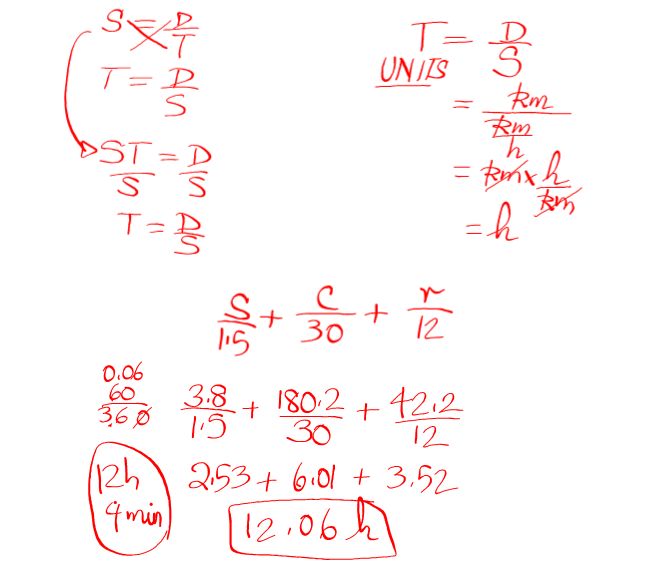 S = D/T
T = D/S
ST/S = D/S
T = D/S
T = D/S
UNITS
= km/(km/h)
= km x h/km
= h
S/1.5 + C/30 + r/12
0.06
60
3.60
3.8/1.5 + 180.2/30 + 42.2/12
2.53 + 6.01 + 3.52
12h
4 min
12.06 h